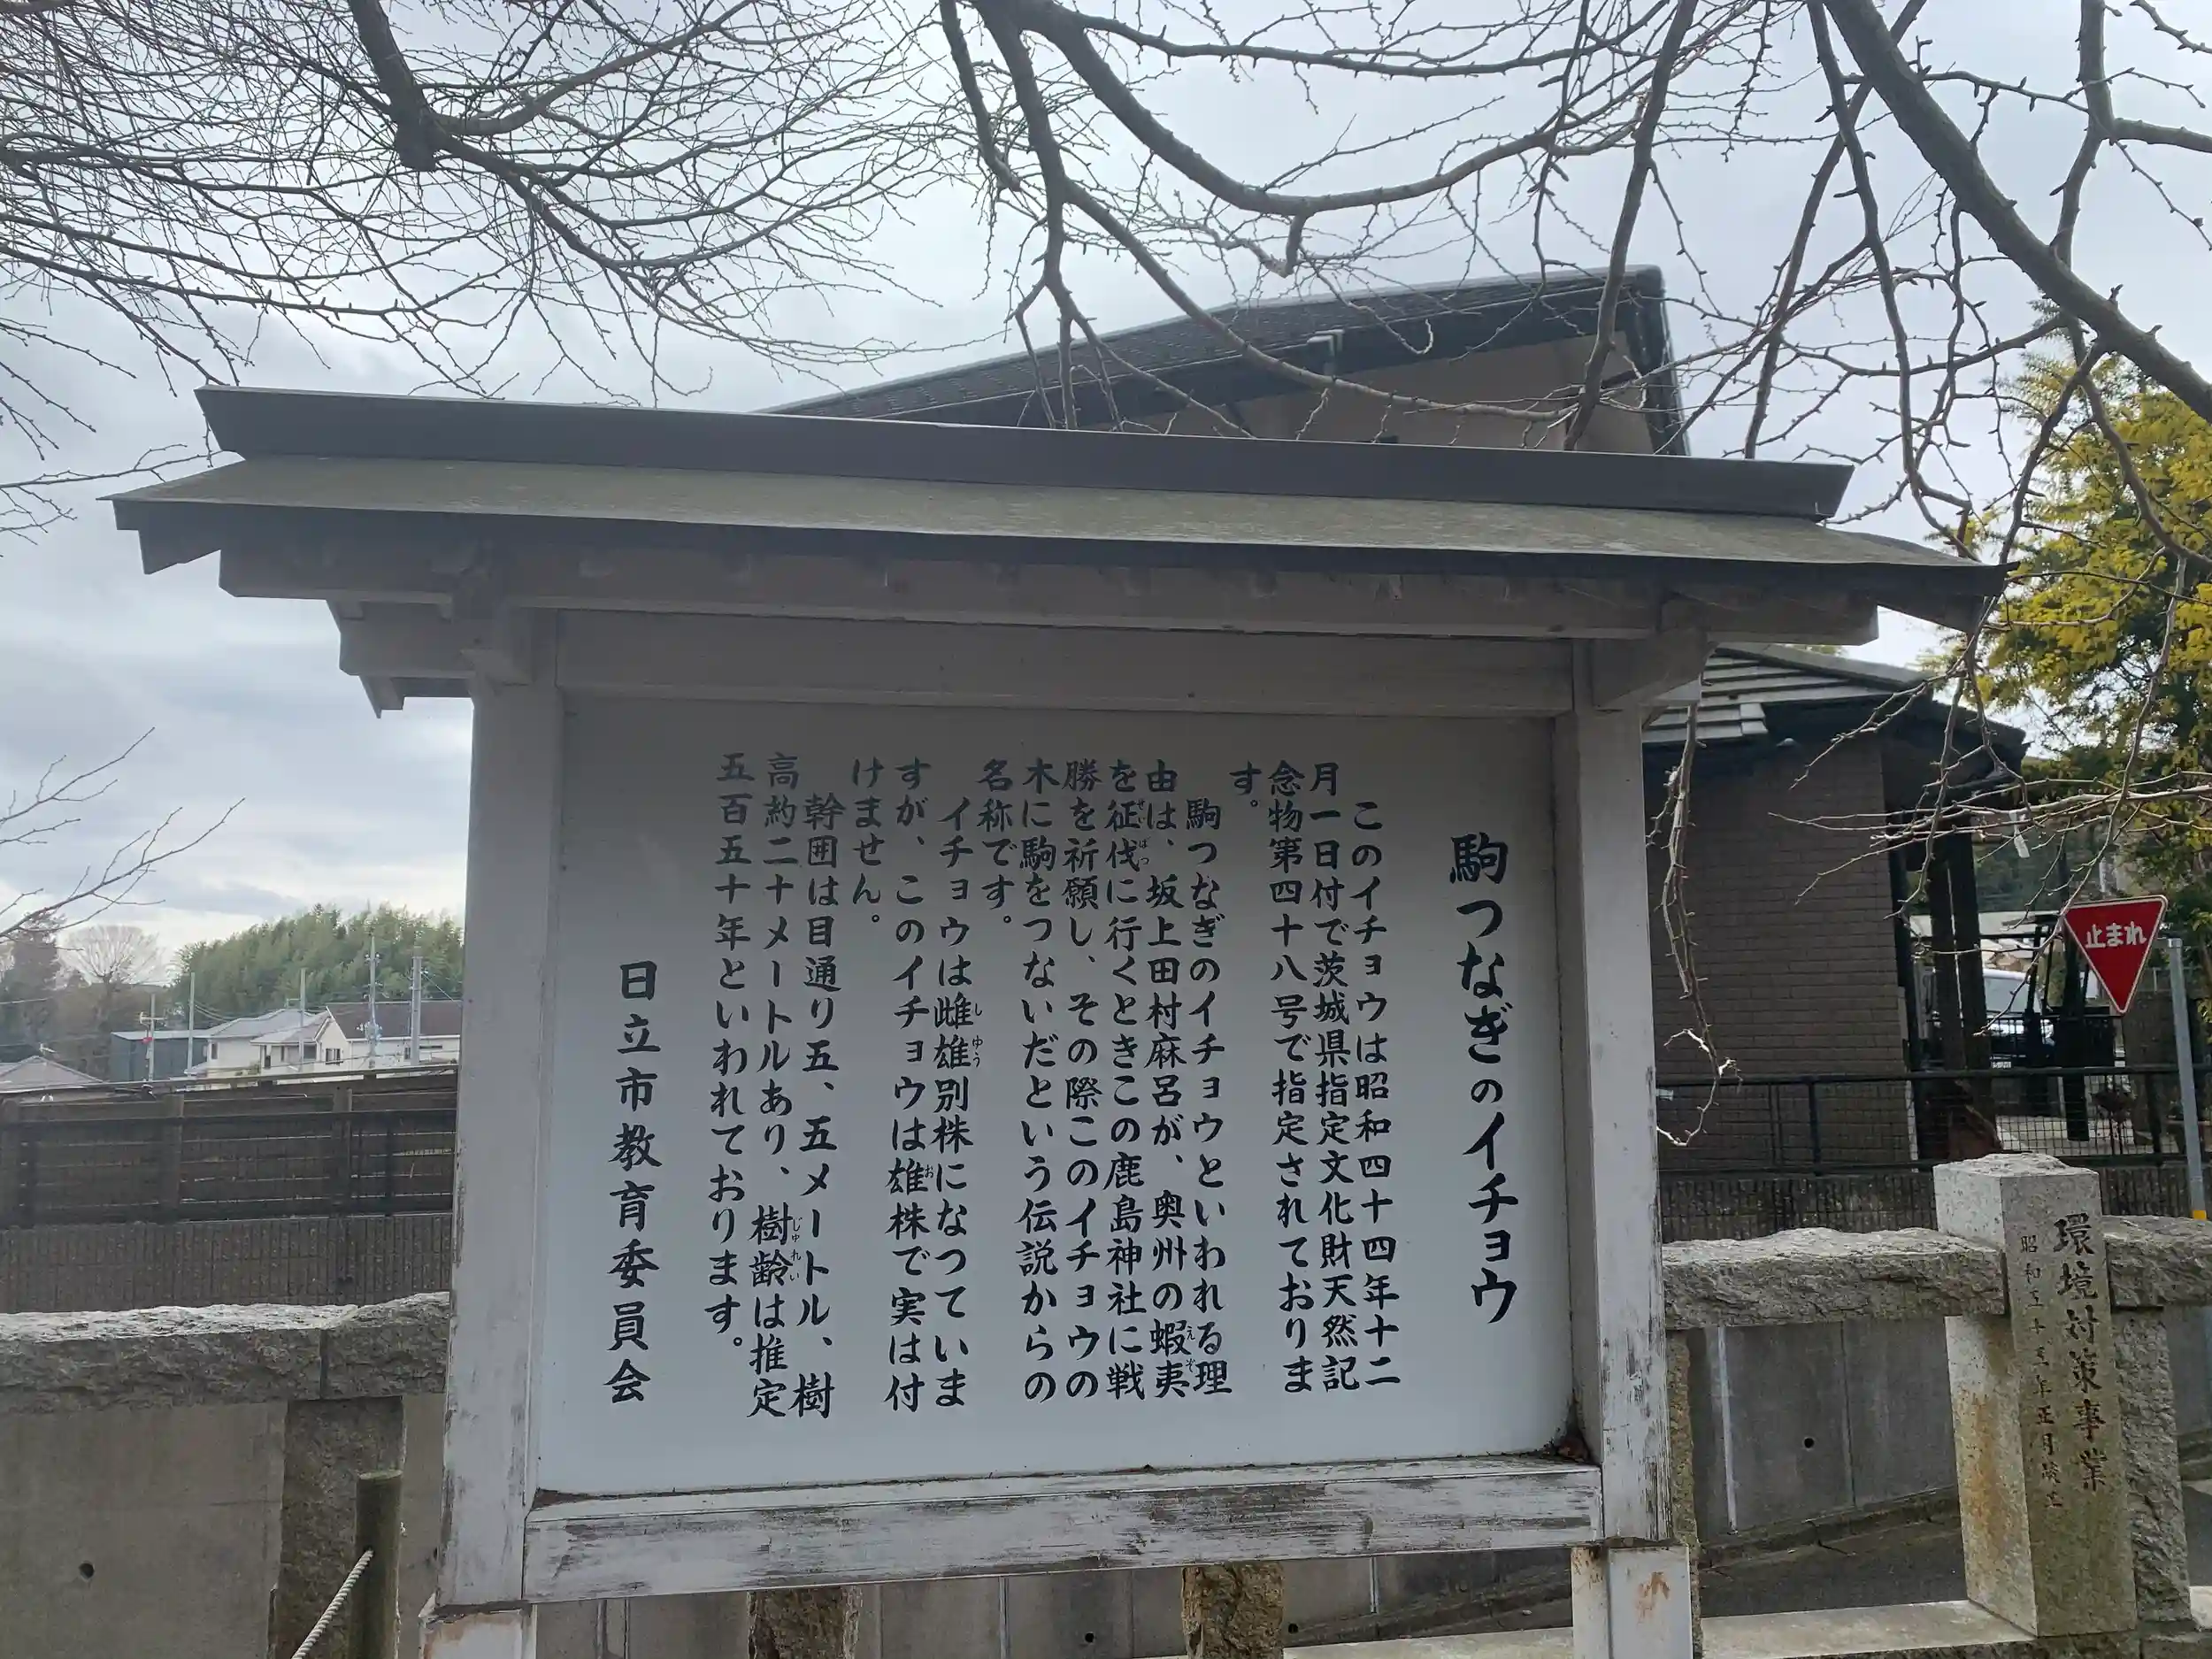 駒つなぎのイチョウ
このイチョウは昭和四十四年十二
月一日付で茨城県指定文化財天然記
念物第四十八号で指定されておりま
す。
駒つなぎのイチョウといわれる理
由は、坂上田村麻呂が、奥州の蝦夷
を征伐に行くときこの鹿島神社に戦
勝を祈願し、その際このイチョウの
木に駒をつないだという伝説からの
名称です。
イチョウは雌雄別株になつていま
すが、このイチョウは雄株で実は付
けません。
幹囲は目通り五、五メートル、樹
高約二十メートルあり、樹齢は推定
五百五十年といわれております。
日立市教育委員会
止まれ
環境対策事業
昭和五十五年正月